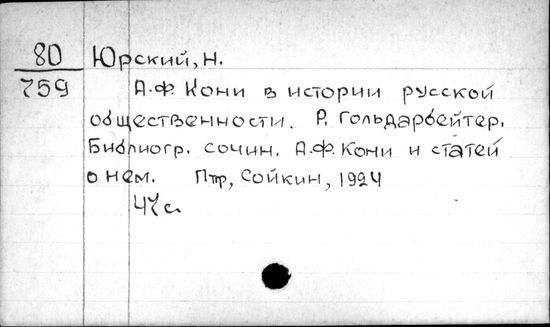 80
759
Юрский, Н.
А.Ф. Кони в истории русской
общественности. Р. Гольдарбейтер.
Библиогр. сочин. А.Ф. Кони и статей
о нем. Птр, Сойкин, 1924
47 с.